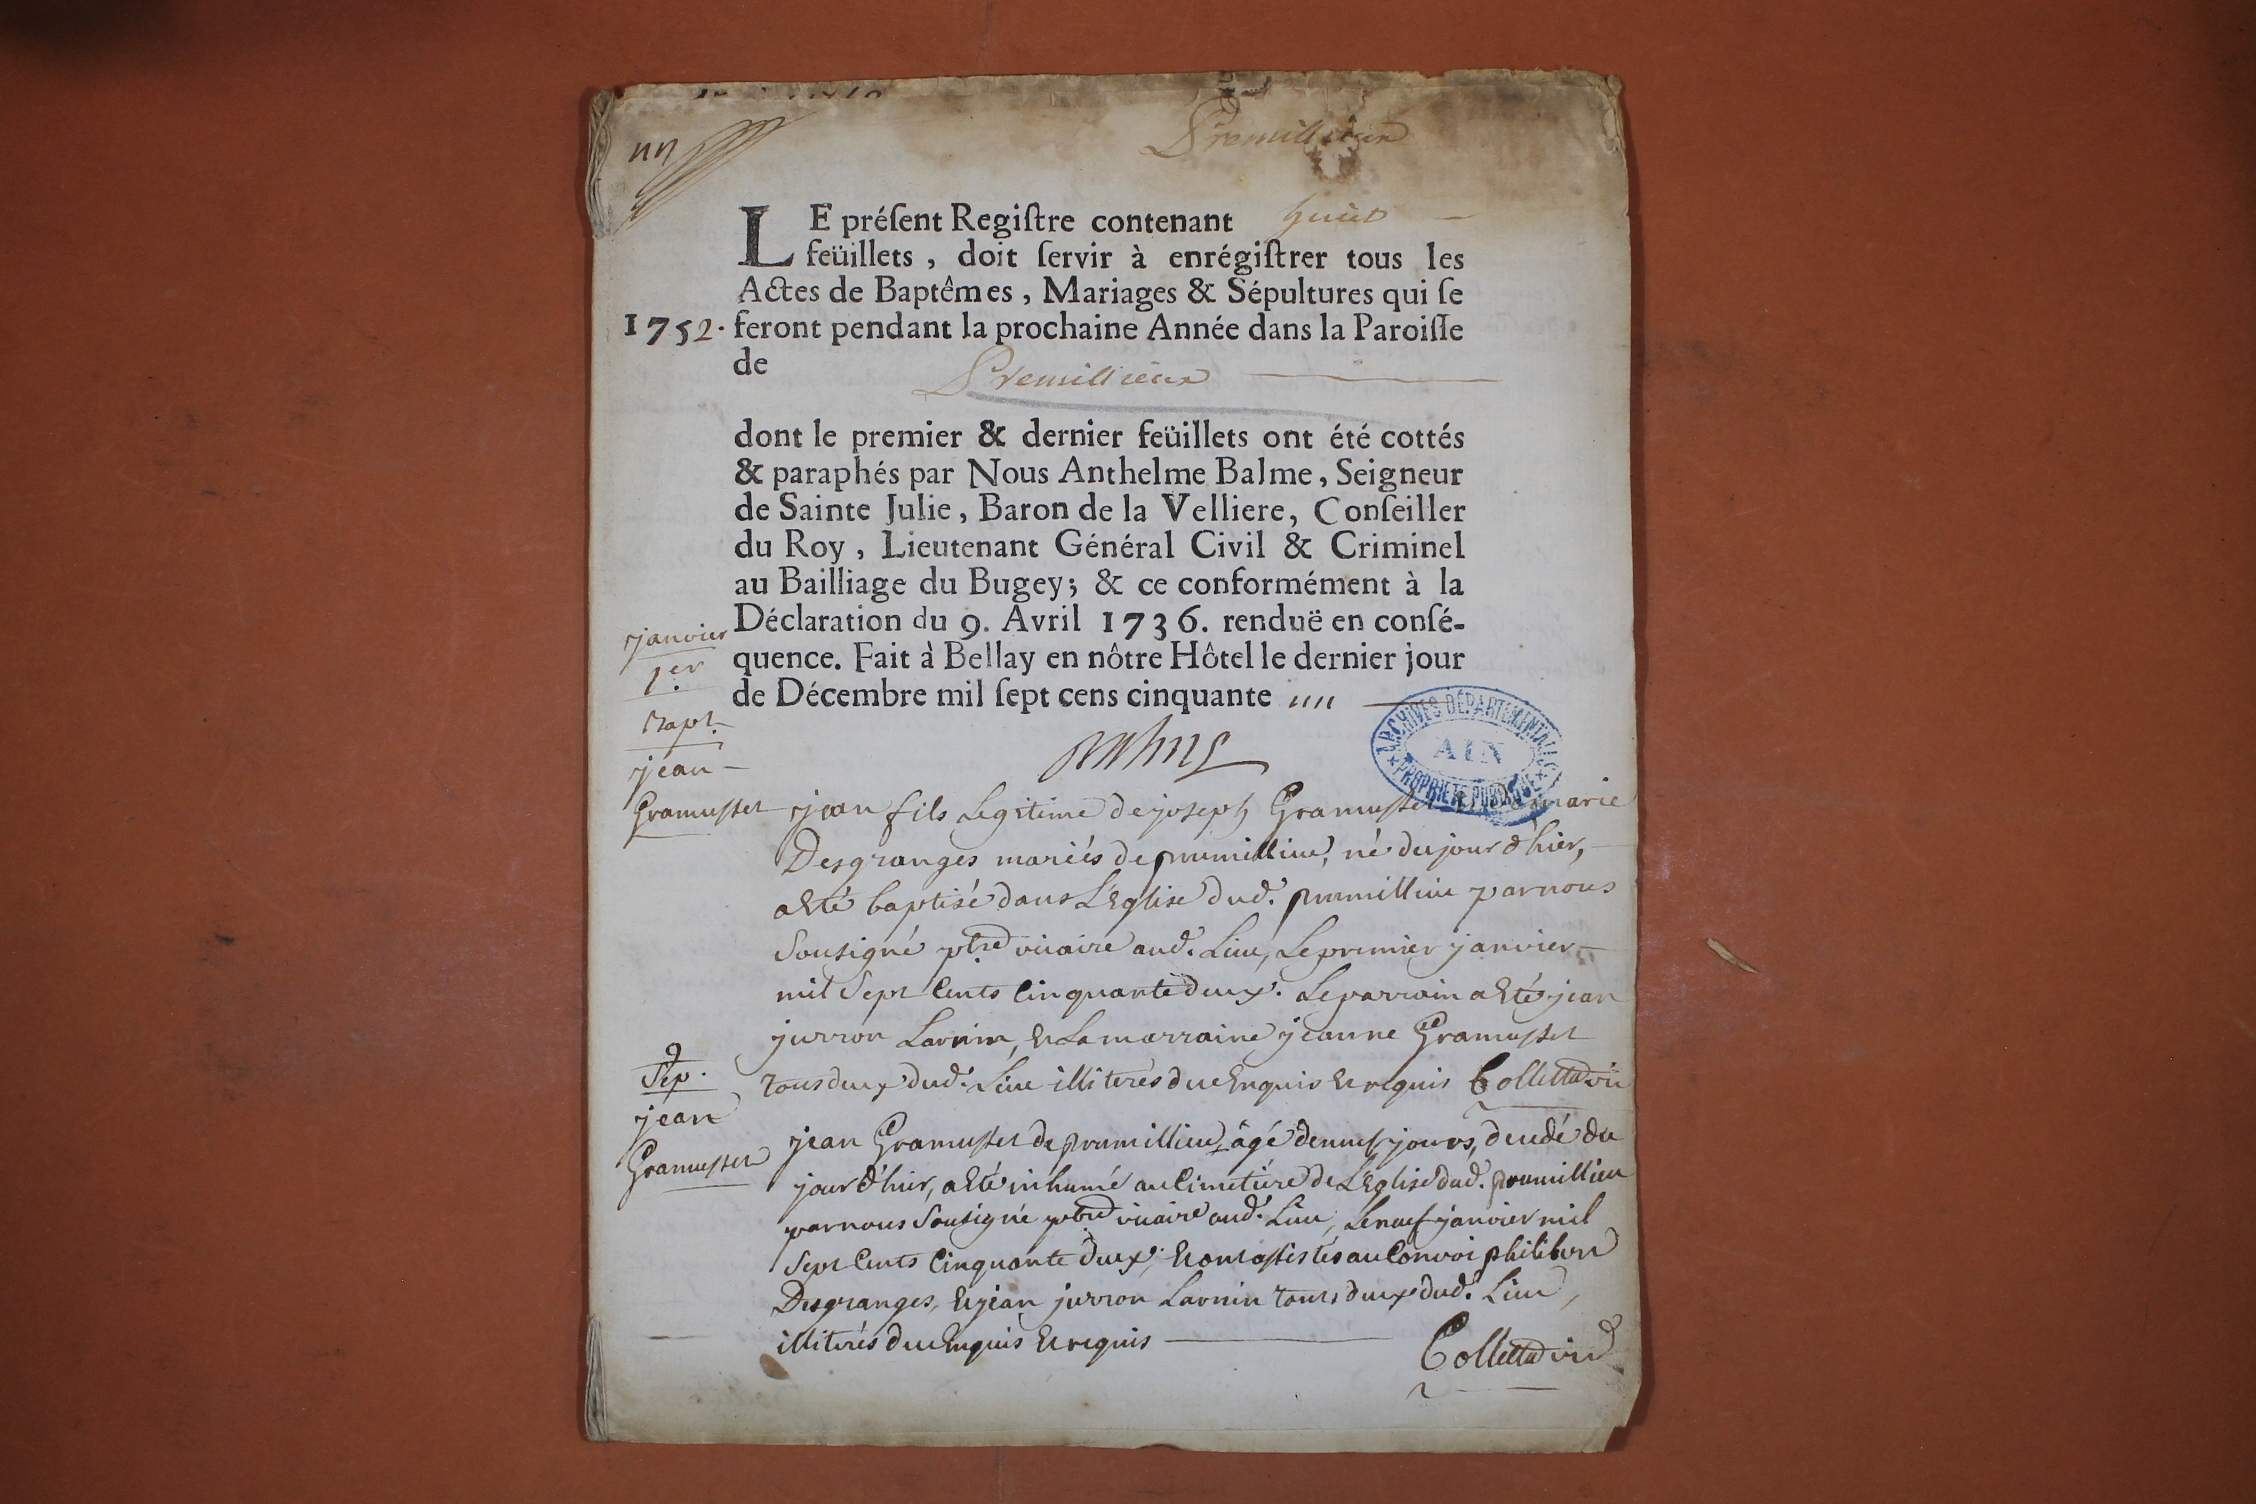 Premillieux
LE préſent Regiſtre contenant huit
feüillets, doit ſervir à enrégiſtrer tous les
Actes de Baptêmes, Mariages & Sépultures qui ſe
1752. feront pendant la prochaine Année dans la Paroiſſe
de
Premillieux
dont le premier & dernier feüillets ont été cottés
& paraphés par Nous Anthelme Balme, Seigneur
de Sainte Julie, Baron de la Velliere, Conſeiller
du Roy, Lieutenant Général Civil & Criminel
au Bailliage du Bugey; & ce conformément à la
Déclaration du 9. Avril 1736. renduë en conſé-
quence. Fait à Bellay en nôtre Hôtel le dernier jour
de Décembre mil ſept cens cinquante
ARCHIVES DÉPARTEMENTALES
AIN
PROPRIÉTÉ PUBLIQUE
janvier
1er.
Bapt.
jean
Gramusset
jean fils Legitime de joseph Gramusset et de marie
Desgranges mariés de prumillieu, né du jour d'hier,
a Eté baptisé dans L'Eglise dud. prumillieu par nous
Sousigné ptre vicaire aud. Lieu, Le premier janvier
mil Sept Cents Cinquante deux. Le parrain a Eté jean
jurron Larnin, Et La marraine jeanne Gramusset
tous deux dud. Lieu illiterés de ce Enquis Et requis Colletta vic
9
Sep.
jean
Gramusset
jean Gramusset de prumillieu, âgé de neuf jours, decedé du
jour d'hier, a Eté inhumé au Cimetiére de L'Eglise dud. prumillieu
par nous Sousigné ptre vicaire aud. Lieu, Le neuf janvier mil
Sept Cents Cinquante deux; Et ont assistés au Convoi philibert
Desgranges, Et jean jurron Larnin tous deux dud. Lieu,
illiterés de ce Enquis Et requis Colletta vic